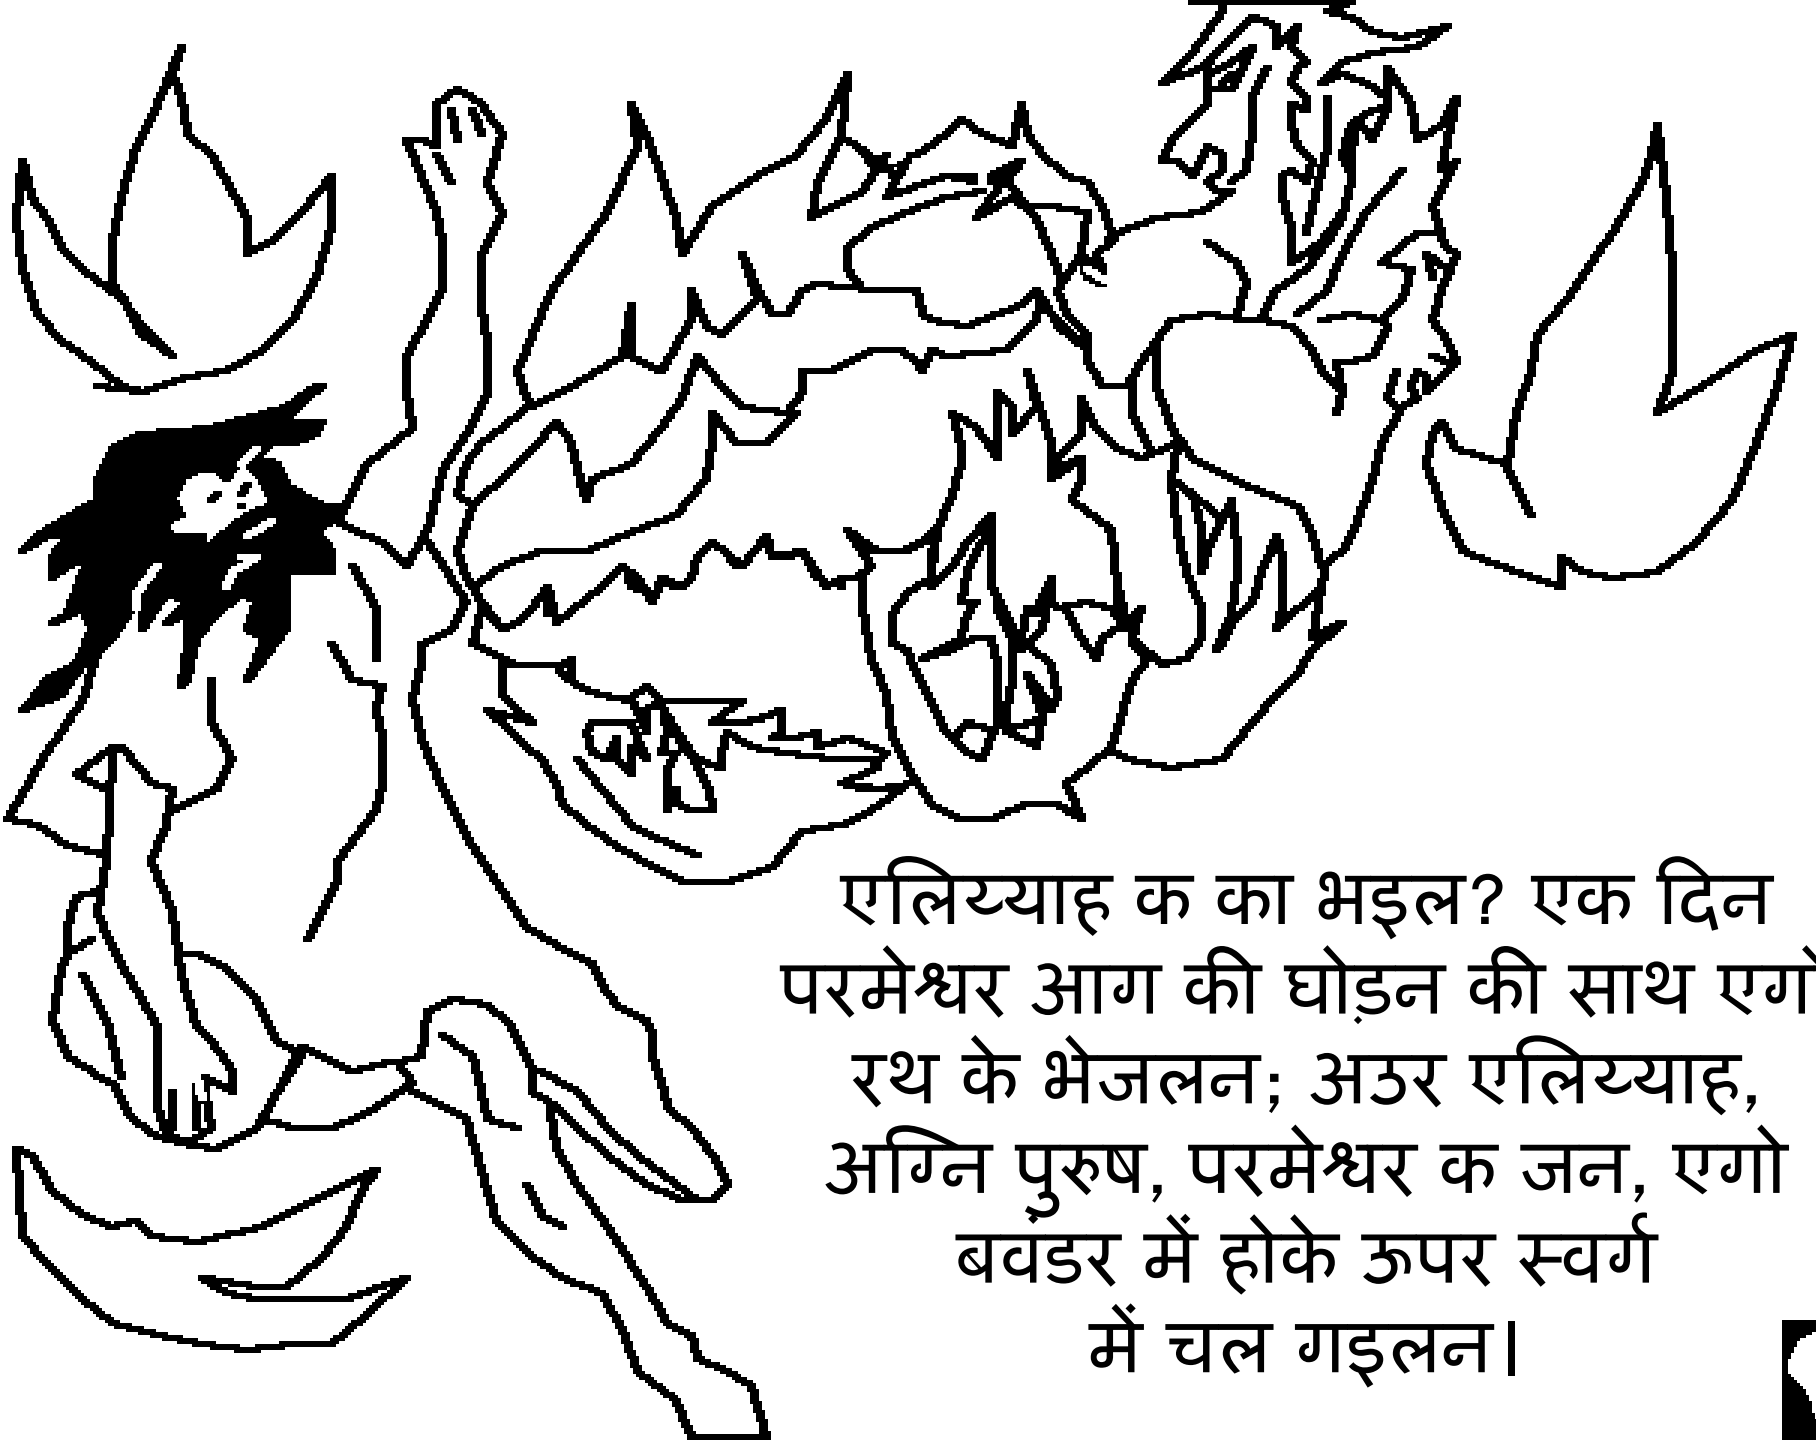 एलिय्याह क का भइल? एक दिन
परमेश्वर आग की घोड़न की साथ एगो
रथ के भेजलन; अउर एलिय्याह,
अग्नि पुरुष, परमेश्वर क जन, एगो
बवंडर में होके ऊपर स्वर्ग
में चल गइलन।